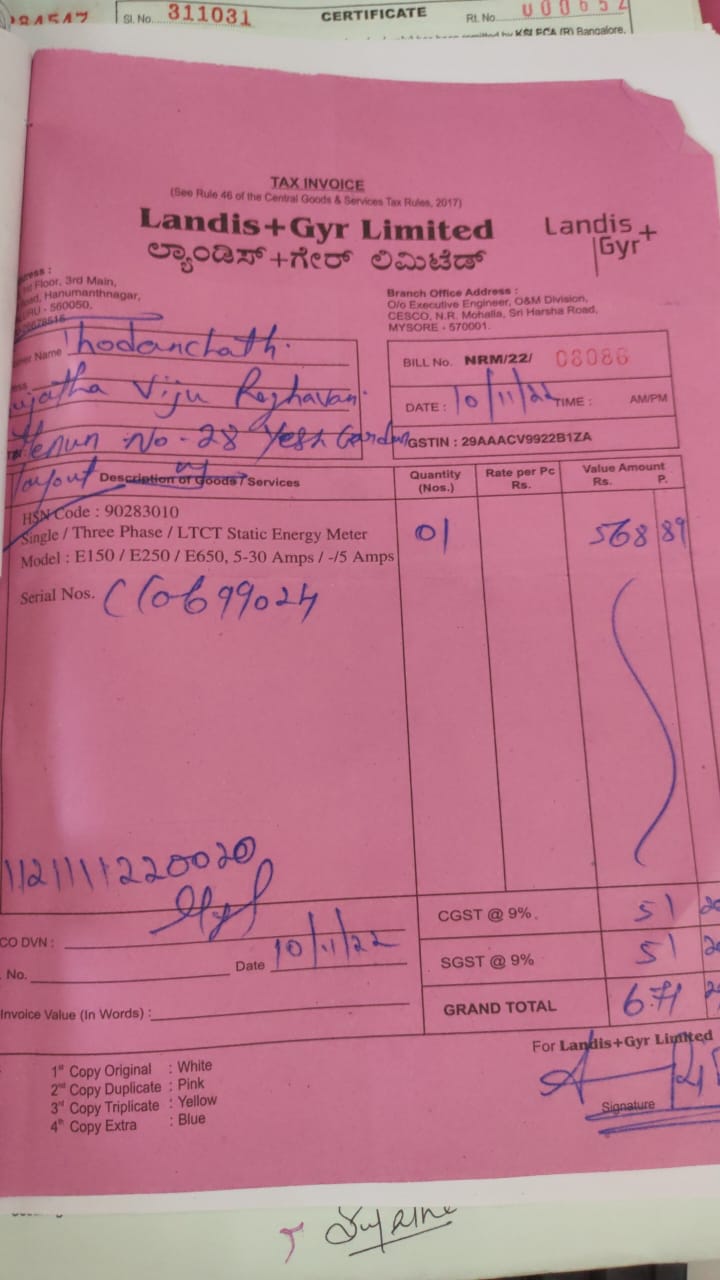 Sl. No. 311031
CERTIFICATE
Rt. No. 000652
KSLECA (R) Bangalore.
TAX INVOICE
(See Rule 46 of the Central Goods & Services Tax Rules, 2017)
Landis+Gyr Limited
Landis+Gyr
ಲ್ಯಾಂಡಿಸ್+ಗೇರ್ ಲಿಮಿಟೆಡ್
Floor, 3rd Main,
Hanumanthnagar,
560050.
Branch Office Address :
O/o Executive Engineer, O&M Division,
CESCO, N.R. Mohalla, Sri Harsha Road,
MYSORE - 570001.
Name Thodanchath.
Viju Raghavan.
No - 28 Yesh Garden
Layout
BILL No. NRM/22/ 08086
DATE : 10/11/22 TIME : AM/PM
GSTIN : 29AAACV9922B1ZA
Description of Goods / Services
Quantity (Nos.)
Rate per Pc Rs.
Value Amount Rs. P.
HSN Code : 90283010
Single / Three Phase / LTCT Static Energy Meter 01 568 89
Model : E150 / E250 / E650, 5-30 Amps / -/5 Amps
Serial Nos. CC0699024
CGST @ 9%. 51
SGST @ 9% 51
GRAND TOTAL 671
CO DVN :
No. Date 10/11/22
Invoice Value (In Words) :
For Landis+Gyr Limited
Signature
1st Copy Original : White
2nd Copy Duplicate : Pink
3rd Copy Triplicate : Yellow
4th Copy Extra : Blue